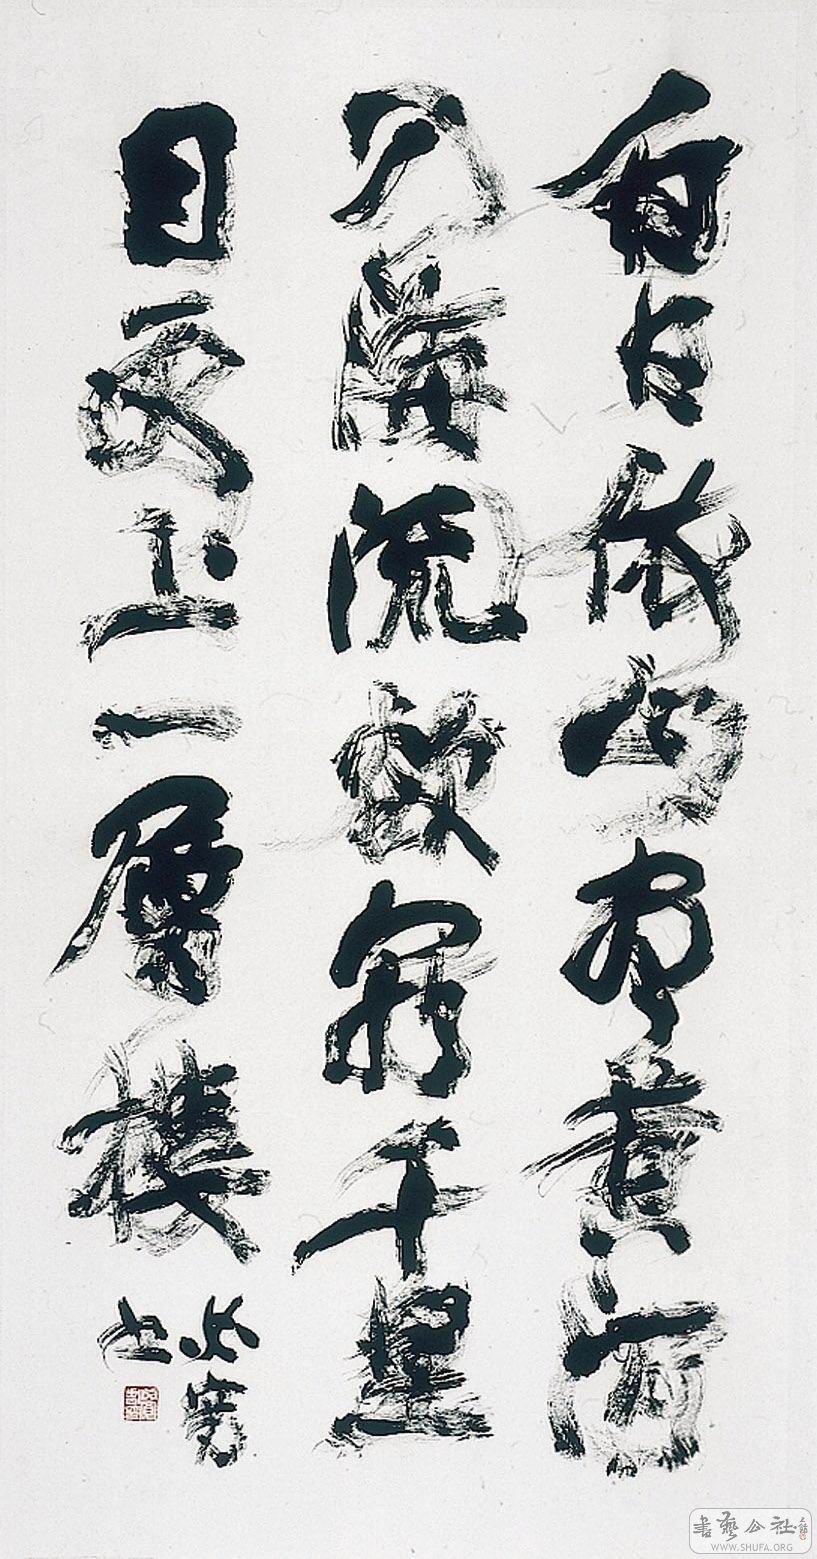 白日依山尽黄河
入海流欲窮千里
目更上一層樓
書藝公社
WWW.SHUFA.ORG